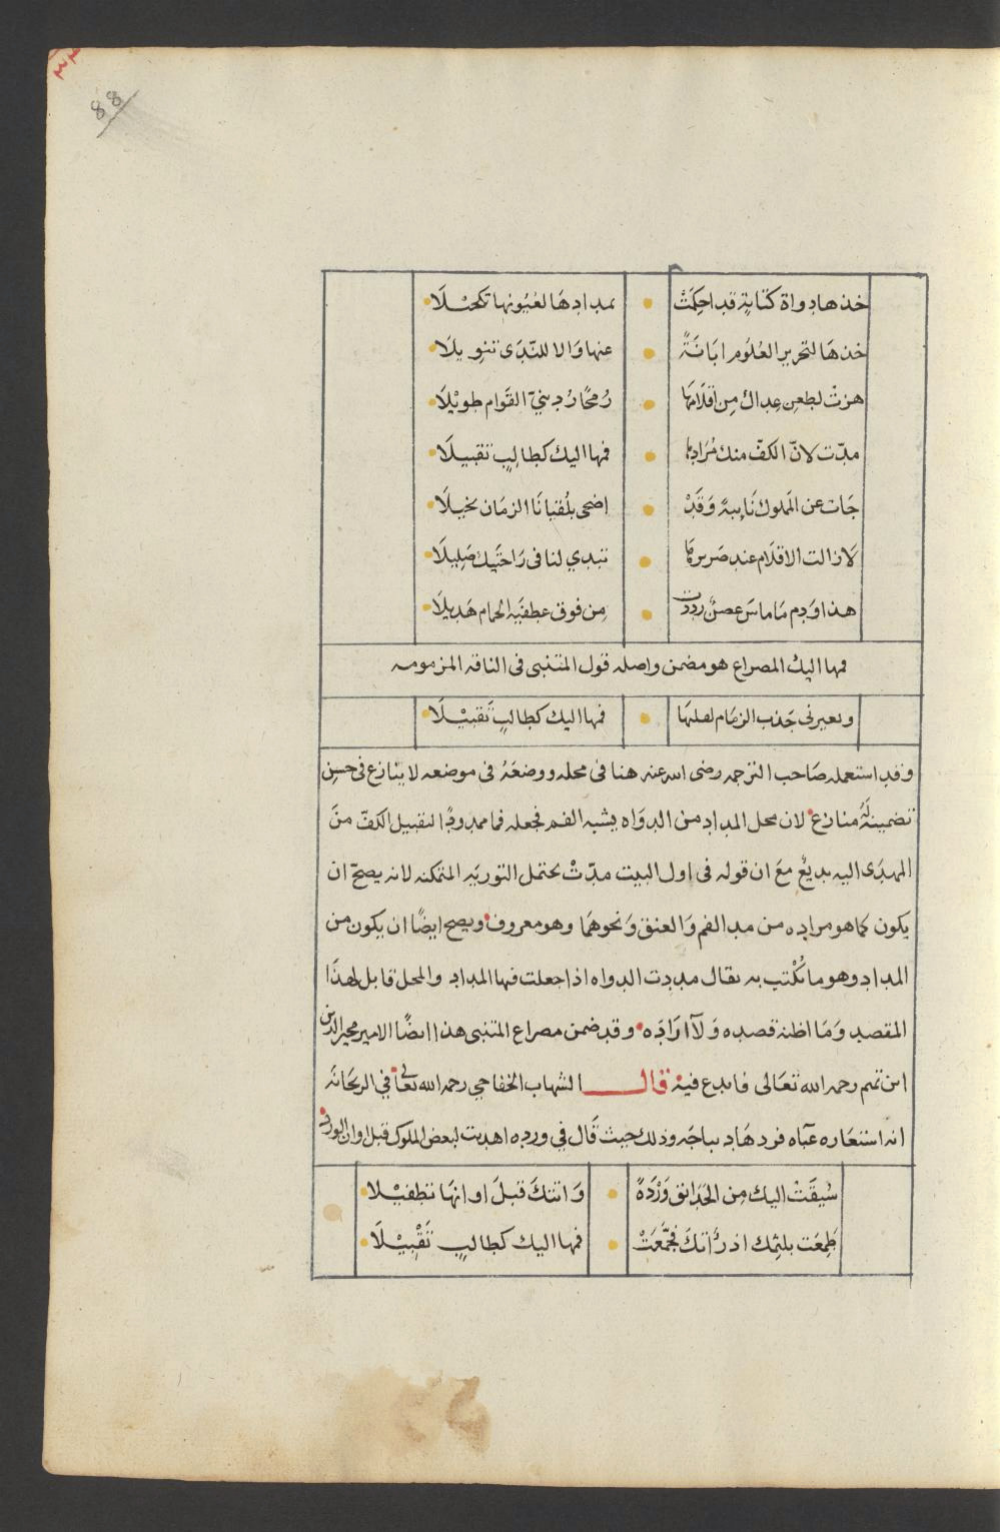 ٣٣
88
خذها دواة كتابة قد احكمَتْ • بمدادها لعُيُونها تكحيْلَا
خذهَا لتحرير العُلوُم ابَانَةً • عنها وَالا للنّدَى تنويلَا
هزتْ لطعن عداك مِن اقلامهَا • رُمحًا رُدينيّ القَوام طويْلَا
مدّت لانّ الكفّ منك مُرَادها • فمها اليك كطالبٍ تقبيلَا
جَات عن المَملوك نَايبةً وَقَدْ • اضحى بلُقيانَا الزمَان بخيلَا
لَا زالت الاقلَام عند صَريرهَا • تبدي لنا فى رَاحتَيك صَليلَا
هذا وَدم مَا ماسَ غصنٌ رددت • مِن فوق عطفَيه الحمام هَديلَا
فمها اليك المصراع هو مضمن واصله قول المتنبى فى الناقه المزمومه
ويعيرنى جَذب الزمَام لقلبهَا • فمها اليك كطالبٍ تَقبيْلَا
وقد استعمله صَاحب الترجمه رضى الله عنه هنا فى محله ووضعَهُ فى موضعه لا ينازع فى حسن
تضمينه لَهُ منازع لان محل المداد من الدوَاه يشبه الفم فجعله فما ممدودًا لتقبيل الكفّ منَ
المهدَى اليه بديعٌ معَ ان قوله فى اول البيت مدّتْ يحتمل التوريَه المتمكنه لانه يصحّ ان
يكون كما هو مراده من مد الفم وَالعنق وَنحوهمَا وهو معروف ويصح ايضًا ان يكون من
المداد وهو ما يُكْتب به يقال مددت الدواه اذا جعلت فيها المداد والمحل قابل لهذَا
المقصد وَمَا اظنه قصده وَلَا ارَادَه وقد ضمن مصراع المتنبى هذا ايضًا الامير مجير الدين
ابن تميم رحمه الله تعَالى فابدع فيه قال الشهاب الخفاجي رحمه الله تعَالى في الريحَانَه
انه استعَاره عبَاه فرد هَا ديباجَه وذلك حيث قَال في ورده اهديت لبعض الملوك قبل اوان الورد
سُيقَتْ اليك مِن الحَدَائق وَرْدَةٌ • وَاتتكَ قبلَ اوانهَا تطفيْلا
طَمِعَت بلثمك اذ رَأتكَ فجمّعَتْ • فمها اليك كطالبٍ تَقْبِيْلَا